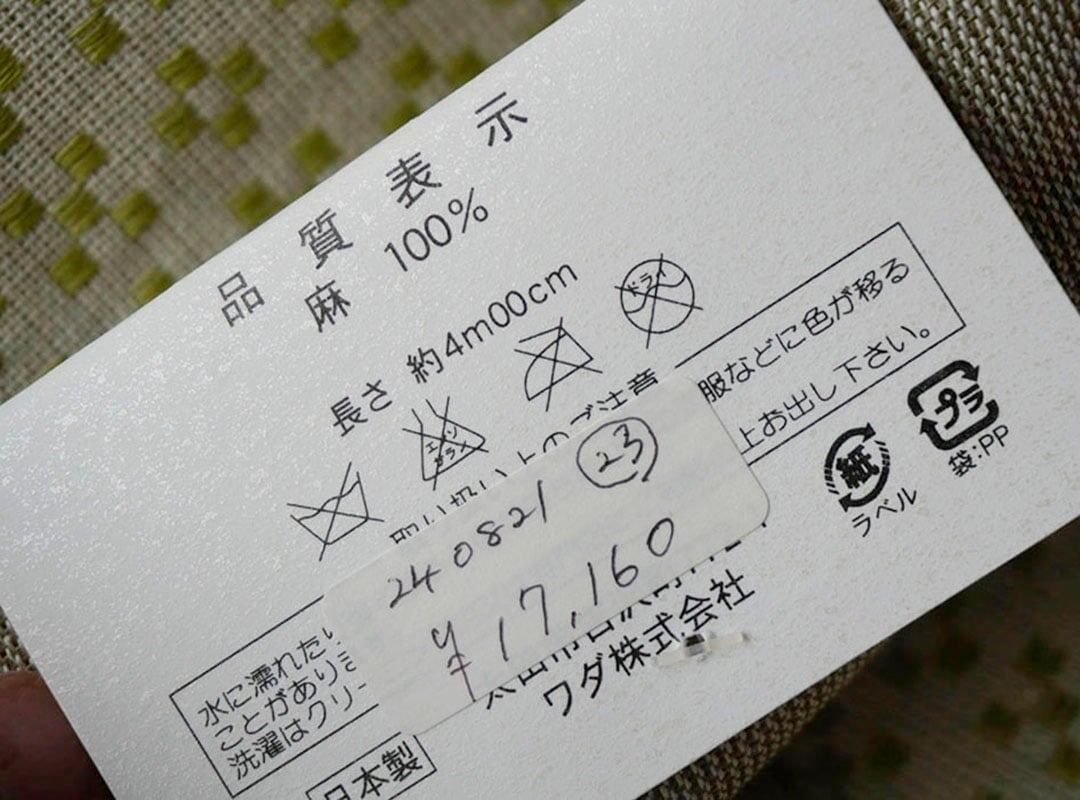 品質表示
麻 100%
長さ 約4m00cm
エンソ
サラシ
ドライ
取り扱い上のご注意
水に濡れたり
服などに色が移る
ことがありま
上お出し下さい。
洗濯はクリー
240821 ㉓
¥17,160
ワダ株式会社
日本製
紙
ラベル
プラ
袋:PP